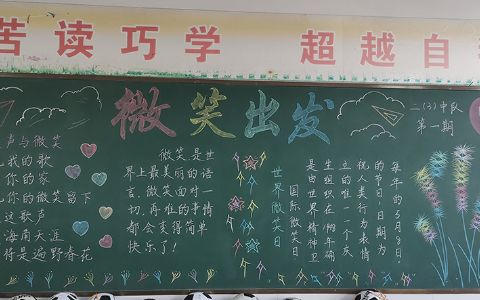 苦读巧学 超越自
微笑出发
二(3)中队
第一期
声与微笑
我的歌
你的家
你的微笑留下
这歌声
海南天涯
将是遍野春花
微笑是世
界上最美丽的语
言，微笑面对一
切，再难的事情
都会变得简单
快乐了！
世界微笑日
国际微笑日
每年的5月8日，
的节日，日期为
祝人类行为表情
立的唯一一个庆
生组织在1948年确
是由世界精神卫